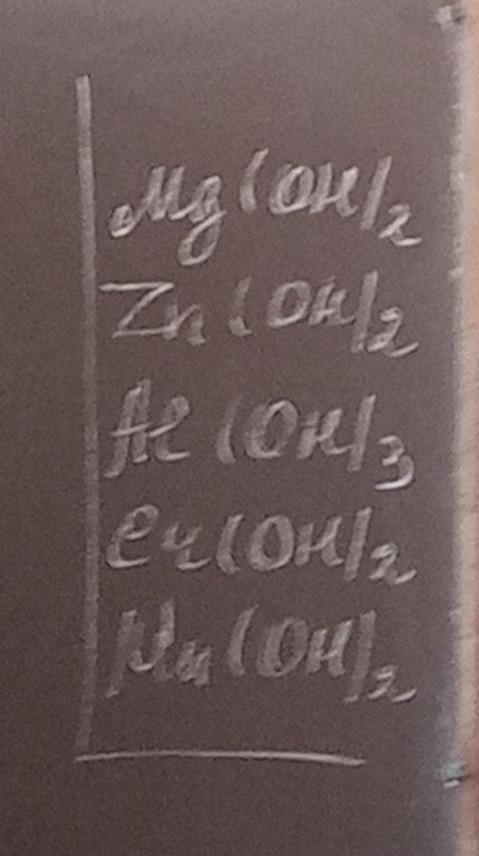 Mg(OH)2
Zn(OH)2
Al(OH)3
Cr(OH)2
Mn(OH)2